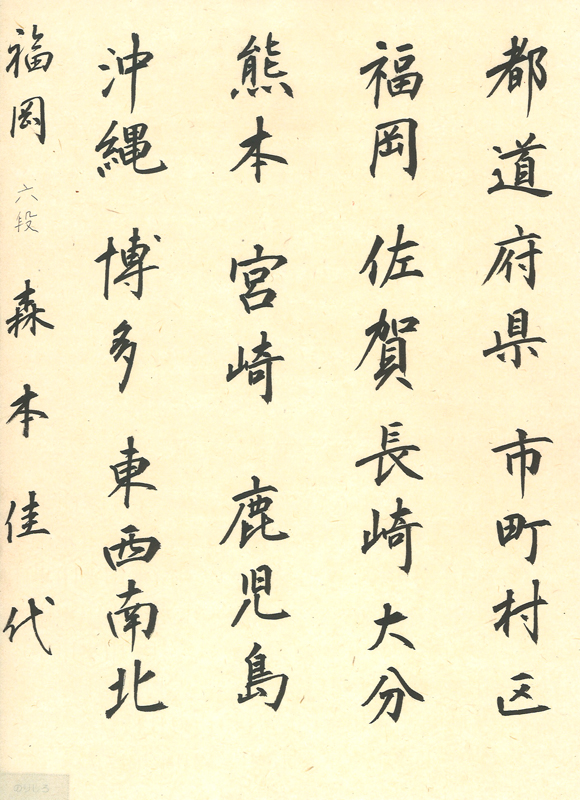 都道府県 市町村区
福岡 佐賀 長崎 大分
熊本 宮崎 鹿児島
沖縄 博多 東西南北
福岡 六段 森本佳代